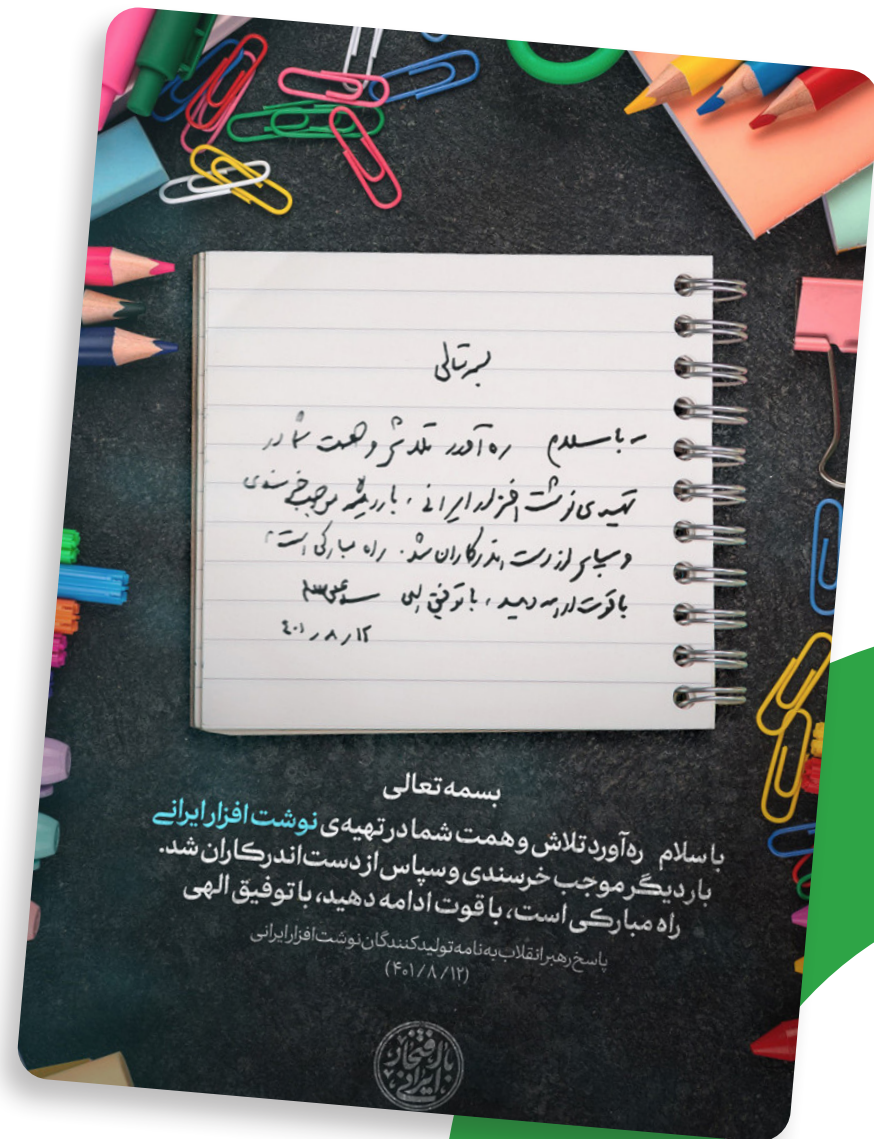 بسمه‌تعالی
با سلام ره‌آورد تلاش و همت شما در
تهیه‌ی نوشت‌افزار ایرانی، بار دیگر موجب خرسندی
و سپاس از دست‌اندرکاران شد. راه مبارکی است،
با قوت ادامه دهید، با توفیق الهی
۴۰۱/۸/۱۲
بسمه تعالی
با سلام ره‌آورد تلاش و همت شما در تهیه‌ی نوشت افزار ایرانی
بار دیگر موجب خرسندی و سپاس از دست‌اندرکاران شد.
راه مبارکی است، با قوت ادامه دهید، با توفیق الهی
پاسخ رهبر انقلاب به نامه تولیدکنندگان نوشت‌افزار ایرانی
(۴۰۱/۸/۱۲)
با افتخار
ایرانی